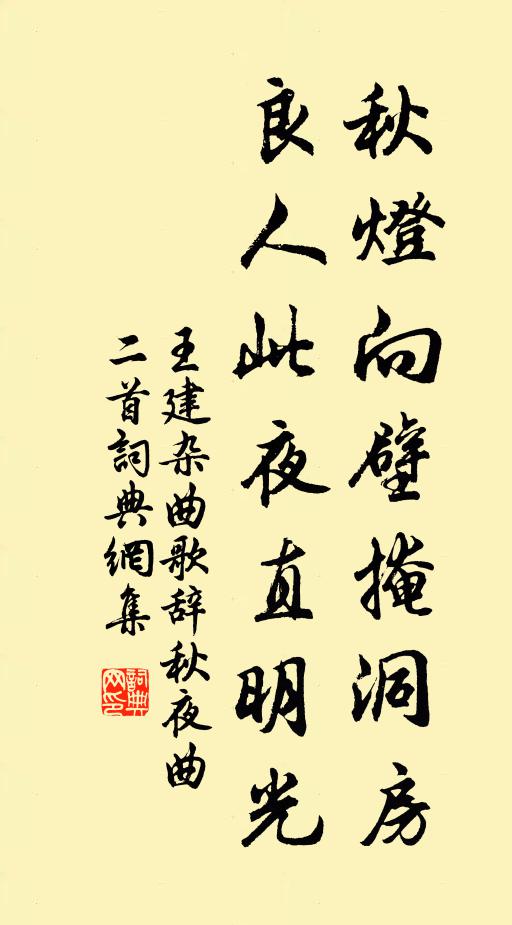 秋燈向壁掩洞房
良人此夜直明光
王建杂曲歌辞秋夜曲
二首詞典網集
詞典网印